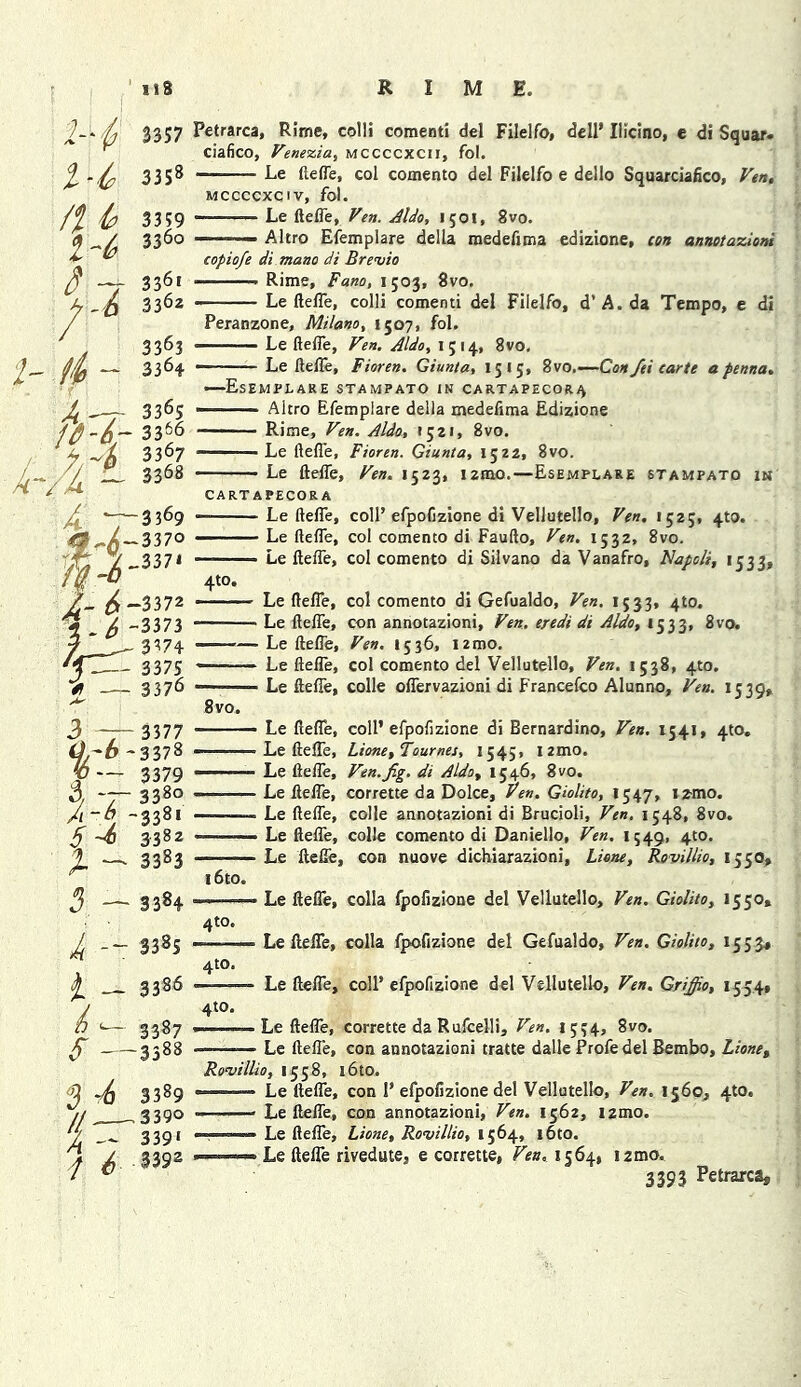 118 RIME.
2--6 3357 Petrarca, Rime, colli comenti del Filelfo, dell' Ilicino, e di Squar-
ciafico, Venezia, MCCCCXCII, fol.
2-6 3358 ——— Le ſteſſe, col comento del Filelfo e dello Squarciafico, Ven.
MCCCCXCIV, fol.
3359 ——— Le ſteſſe, Ven. Aldo, 1501, 8vo.
3360 ——— Altro Eſemplare della medeſima edizione, con annotazioni
copioſe di mano di Brevio
3361 ——— Rime, Fano, 1503, 8vo.
3362 ——— Le ſteſſe, colli comenti del Filelfo, d' A. da Tempo, e di
Peranzone, Milano, 1507, fol.
3363 ——— Le ſteſſe, Ven. Aldo, 1514, 8vo.
3364 ——— Le ſteſſe, Fioren. Giunta, 1515, 8vo.—Con ſei carte a penna.
—ESEMPLARE STAMPATO IN CARTAPECORA
3365 ——— Altro Eſemplare della medeſima Edizione
3366 ——— Rime, Ven. Aldo, 1521, 8vo.
3367 ——— Le ſteſſe, Fioren. Giunta, 1522, 8vo.
3368 ——— Le ſteſſe, Ven. 1523, 12mo.—ESEMPLARE STAMPATO IN
CARTAPECORA
3369 ——— Le ſteſſe, coll' eſpoſizione di Vellutello, Ven. 1525, 4to.
3370 ——— Le ſteſſe, col comento di Fauſto, Ven. 1532, 8vo.
3371 ——— Le ſteſſe, col comento di Silvano da Vanafro, Napoli, 1533,
4to.
3372 ——— Le ſteſſe, col comento di Geſualdo, Ven. 1533, 4to.
3373 ——— Le ſteſſe, con annotazioni, Ven. eredi di Aldo, 1533, 8vo.
3374 ——— Le ſteſſe, Ven. 1536, 12mo.
3375 ——— Le ſteſſe, col comento del Vellutello, Ven. 1538, 4to.
3376 ——— Le ſteſſe, colle oſſervazioni di Franceſco Alunno, Ven. 1539,
8vo.
3 — 3377 ——— Le ſteſſe, coll' eſpoſizione di Bernardino, Ven. 1541, 4to.
3378 ——— Le ſteſſe, Lione, Tournes, 1545, 12mo.
3379 ——— Le ſteſſe, Ven. fig. di Aldo, 1546, 8vo.
3 — 3380 ——— Le ſteſſe, corrette da Dolce, Ven. Giolito, 1547, 12mo.
3381 ——— Le ſteſſe, colle annotazioni di Brucioli, Ven. 1548, 8vo.
5-6 3382 ——— Le ſteſſe, colle comento di Daniello, Ven. 1549, 4to.
2 — 3383 ——— Le ſteſſe, con nuove dichiarazioni, Lione, Rovillio, 1550,
16to.
3 — 3384 ——— Le ſteſſe, colla ſpoſizione del Vellutello, Ven. Giolito, 1550,
4to.
4 -- 3385 ——— Le ſteſſe, colla ſpoſizione del Geſualdo, Ven. Giolito, 1553,
4to.
3386 ——— Le ſteſſe, coll' eſpoſizione del Vellutello, Ven. Griffio, 1554,
4to.
6 — 3387 ——— Le ſteſſe, corrette da Ruſcelli, Ven. 1554, 8vo.
5 — 3388 ——— Le ſteſſe, con annotazioni tratte dalle Proſe del Bembo, Lione,
Rovillio, 1558, 16to.
3-6 3389 ——— Le ſteſſe, con l' eſpoſizione del Vellutello, Ven. 1560, 4to.
3390 ——— Le ſteſſe, con annotazioni, Ven. 1562, 12mo.
3391 ——— Le ſteſſe, Lione, Rovillio, 1564, 16to.
3392 ——— Le ſteſſe rivedute, e corrette, Ven. 1564, 12mo.
3393 Petrarca,